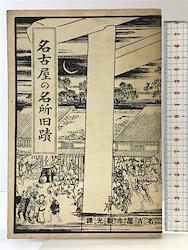 名古屋の名所旧蹟
名古屋市観光課